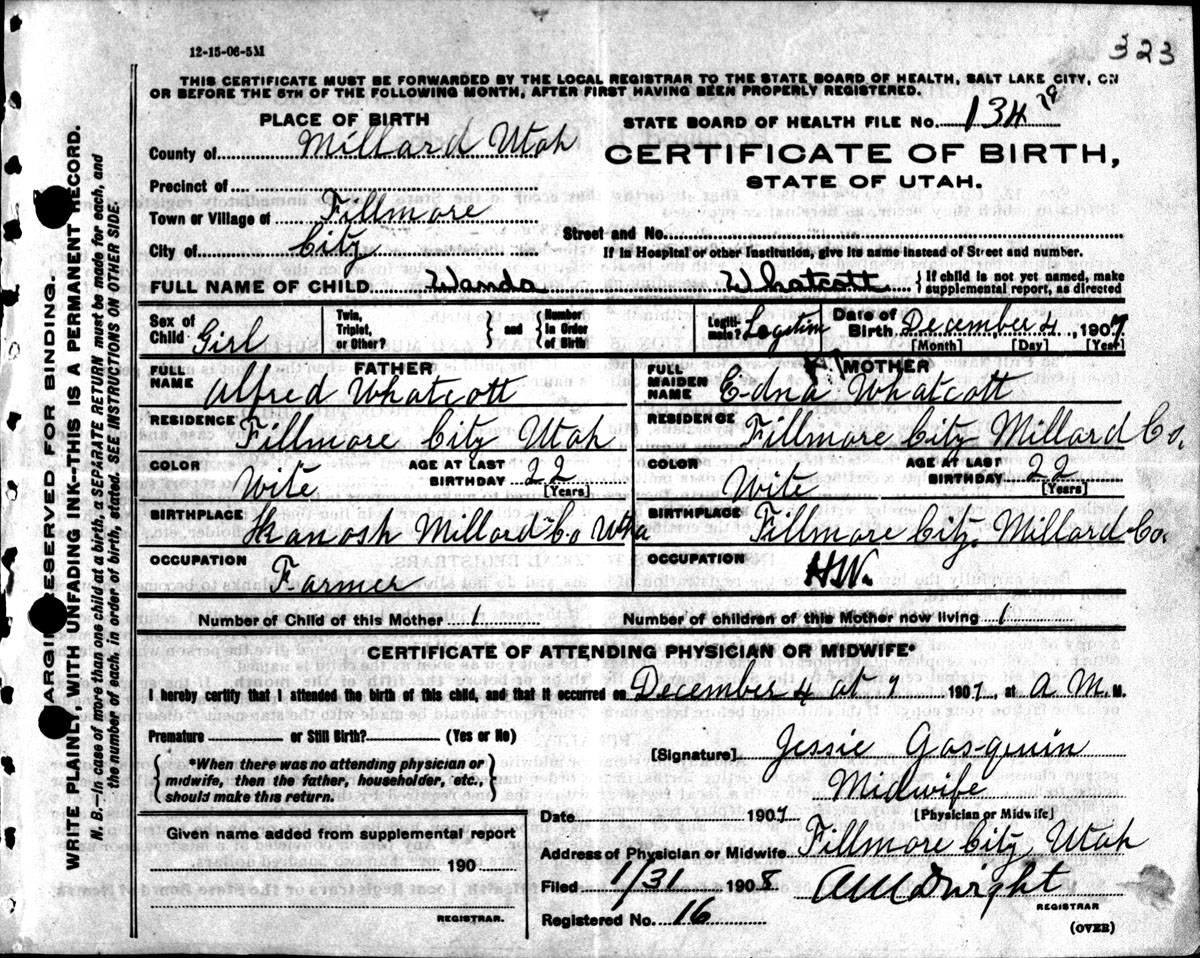 12-15-06-5M
323
THIS CERTIFICATE MUST BE FORWARDED BY THE LOCAL REGISTRAR TO THE STATE BOARD OF HEALTH, SALT LAKE CITY, ON
OR BEFORE THE 5TH OF THE FOLLOWING MONTH, AFTER FIRST HAVING BEEN PROPERLY REGISTERED.
PLACE OF BIRTH
STATE BOARD OF HEALTH FILE No. 134 78
County of Millard Utah
CERTIFICATE OF BIRTH,
STATE OF UTAH.
Precinct of
Town or Village of Fillmore
Street and No.
City of City
If in Hospital or other Institution, give its name instead of Street and number.
FULL NAME OF CHILD Wanda Whatcott { If child is not yet named, make supplemental report, as directed
Sex of Child Girl Twin, Triplet, or Other? } and { Number in Order of Birth Legitimate? Legitim Date of Birth December 4, 1907
[Month] [Day] [Year]
FATHER
MOTHER
FULL NAME Alfred Whatcott
FULL MAIDEN NAME Edna Whatcott
RESIDENCE Fillmore City Utah
RESIDENCE Fillmore City Millard Co.
COLOR Wite AGE AT LAST BIRTHDAY 22 [Years]
COLOR Wite AGE AT LAST BIRTHDAY 22 [Years]
BIRTHPLACE Kanosh Millard Co Utha
BIRTHPLACE Fillmore City. Millard Co.
OCCUPATION Farmer
OCCUPATION HW.
Number of Child of this Mother 1
Number of children of this Mother now living 1
CERTIFICATE OF ATTENDING PHYSICIAN OR MIDWIFE*
I hereby certify that I attended the birth of this child, and that it occurred on December 4 at 7 1907, at A M M.
Premature or Still Birth? (Yes or No)
{ *When there was no attending physician or midwife, then the father, householder, etc., should make this return. }
[Signature] Jessie Gasquin
Midwife
[Physician or Midwife]
Date 1907
Given name added from supplemental report
190
REGISTRAR.
Address of Physician or Midwife Fillmore City Utah
Filed 1/31 1908 AM Dwight
REGISTRAR
Registered No. 16
(OVER)
MARGIN RESERVED FOR BINDING.
WRITE PLAINLY, WITH UNFADING INK—THIS IS A PERMANENT RECORD.
N. B.—In case of more than one child at a birth, a SEPARATE RETURN must be made for each, and
the number of each, in order of birth, stated. SEE INSTRUCTIONS ON OTHER SIDE.